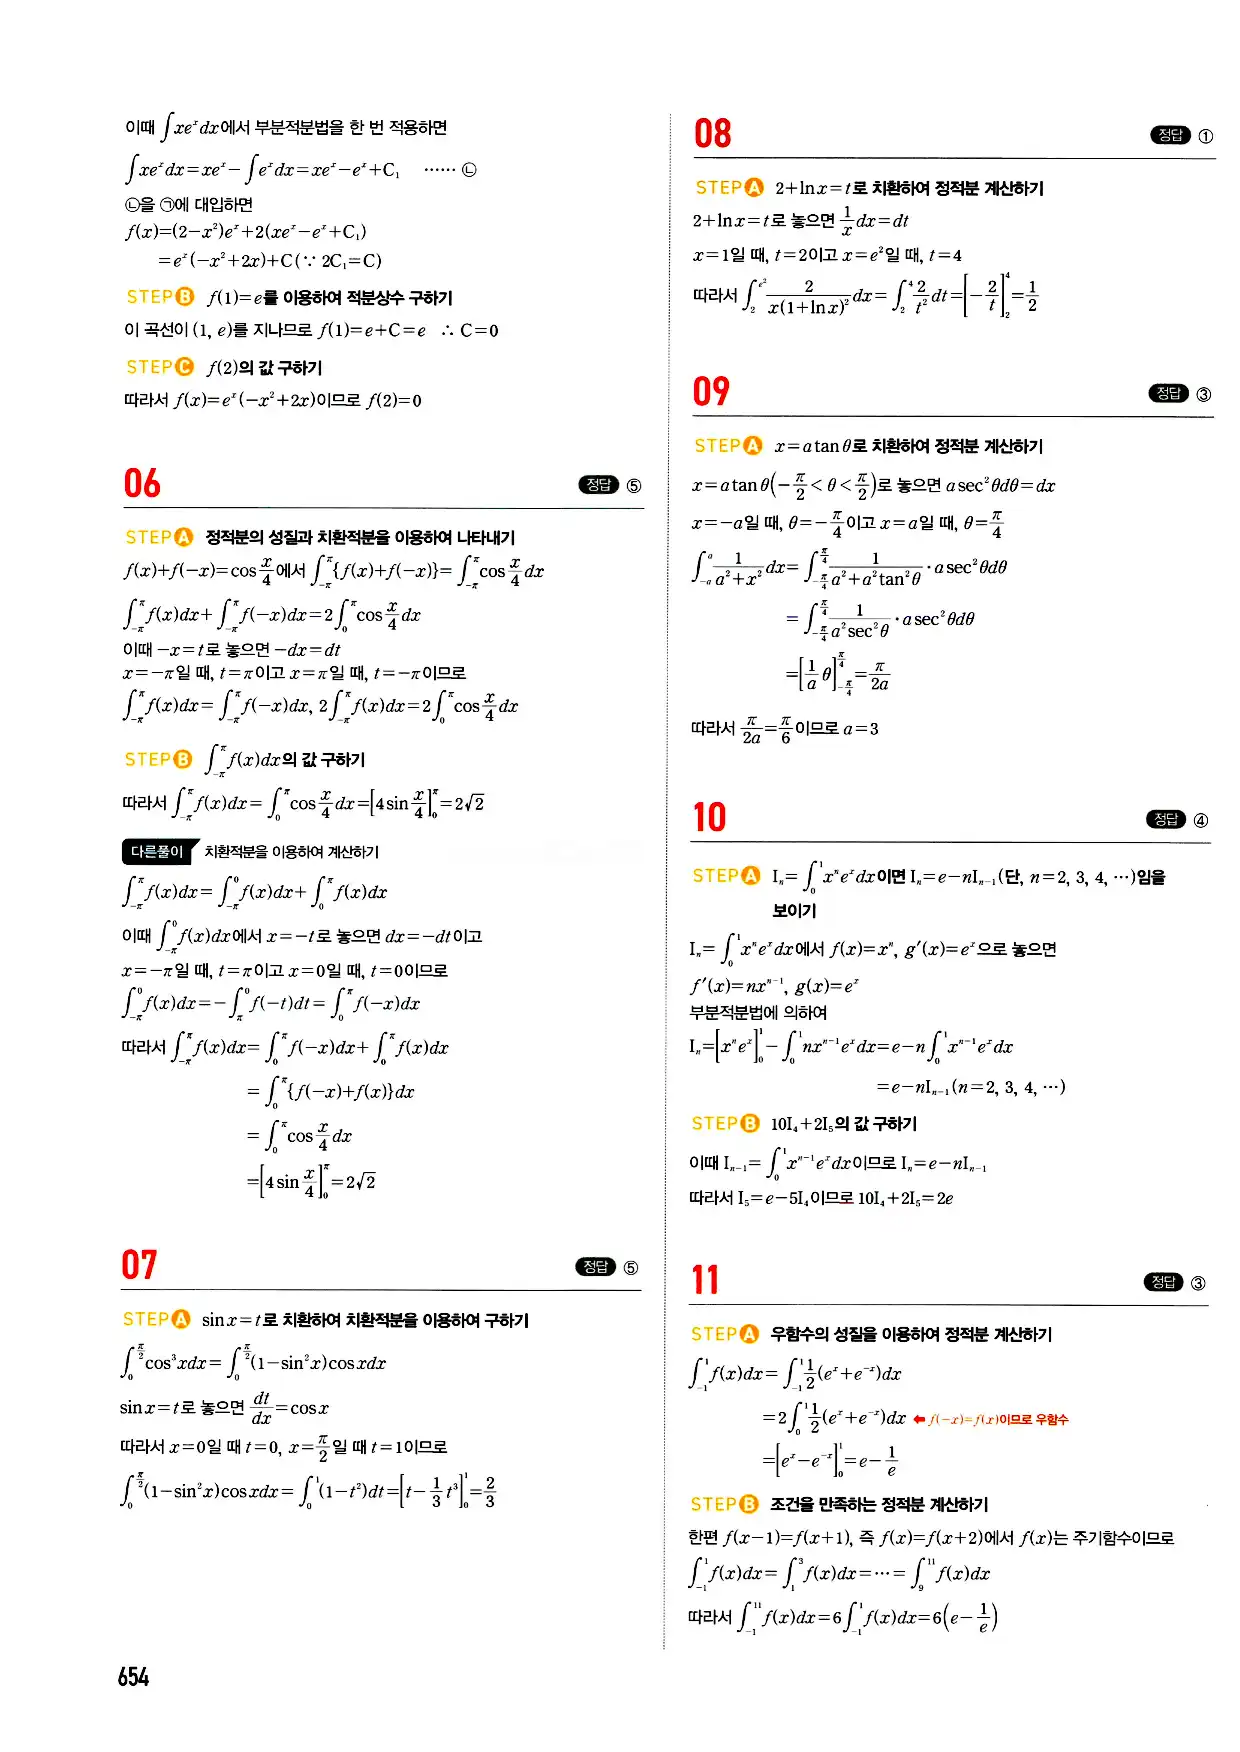 이때 ∫xeˣdx에서 부분적분법을 한 번 적용하면
∫xeˣdx=xeˣ−∫eˣdx=xeˣ−eˣ+C₁ ······ ㉡
㉡을 ㉠에 대입하면
f(x)=(2−x²)eˣ+2(xeˣ−eˣ+C₁)
=eˣ(−x²+2x)+C(∵ 2C₁=C)
STEP B f(1)=e를 이용하여 적분상수 구하기
이 곡선이 (1, e)를 지나므로 f(1)=e+C=e ∴ C=0
STEP C f(2)의 값 구하기
따라서 f(x)=eˣ(−x²+2x)이므로 f(2)=0
06 정답 ⑤
STEP A 정적분의 성질과 치환적분을 이용하여 나타내기
f(x)+f(−x)=cos x/4에서 ∫_{−π}^{π}{f(x)+f(−x)}=∫_{−π}^{π}cos x/4 dx
∫_{−π}^{π}f(x)dx+∫_{−π}^{π}f(−x)dx=2∫_{0}^{π}cos x/4 dx
이때 −x=t로 놓으면 −dx=dt
x=−π일 때, t=π이고 x=π일 때, t=−π이므로
∫_{−π}^{π}f(x)dx=∫_{−π}^{π}f(−x)dx, 2∫_{−π}^{π}f(x)dx=2∫_{0}^{π}cos x/4 dx
STEP B ∫_{−π}^{π}f(x)dx의 값 구하기
따라서 ∫_{−π}^{π}f(x)dx=∫_{0}^{π}cos x/4 dx=[4sin x/4]_{0}^{π}=2√2
다른풀이 치환적분을 이용하여 계산하기
∫_{−π}^{π}f(x)dx=∫_{−π}^{0}f(x)dx+∫_{0}^{π}f(x)dx
이때 ∫_{−π}^{0}f(x)dx에서 x=−t로 놓으면 dx=−dt이고
x=−π일 때, t=π이고 x=0일 때, t=0이므로
∫_{−π}^{0}f(x)dx=−∫_{π}^{0}f(−t)dt=∫_{0}^{π}f(−x)dx
따라서 ∫_{−π}^{π}f(x)dx=∫_{0}^{π}f(−x)dx+∫_{0}^{π}f(x)dx
=∫_{0}^{π}{f(−x)+f(x)}dx
=∫_{0}^{π}cos x/4 dx
=[4sin x/4]_{0}^{π}=2√2
07 정답 ⑤
STEP A sinx=t로 치환하여 치환적분을 이용하여 구하기
∫_{0}^{π/2}cos³xdx=∫_{0}^{π/2}(1−sin²x)cosxdx
sinx=t로 놓으면 dt/dx=cosx
따라서 x=0일 때 t=0, x=π/2일 때 t=1이므로
∫_{0}^{π/2}(1−sin²x)cosxdx=∫_{0}^{1}(1−t²)dt=[t−1/3 t³]_{0}^{1}=2/3
08 정답 ①
STEP A 2+lnx=t로 치환하여 정적분 계산하기
2+lnx=t로 놓으면 1/x dx=dt
x=1일 때, t=2이고 x=e²일 때, t=4
따라서 ∫_{2}^{e²} 2/x(1+lnx)² dx=∫_{2}^{4} 2/t² dt=[−2/t]_{2}^{4}=1/2
09 정답 ③
STEP A x=atanθ로 치환하여 정적분 계산하기
x=atanθ(−π/2<θ<π/2)로 놓으면 asec²θdθ=dx
x=−a일 때, θ=−π/4이고 x=a일 때, θ=π/4
∫_{−a}^{a} 1/(a²+x²) dx=∫_{−π/4}^{π/4} 1/(a²+a²tan²θ)·asec²θdθ
=∫_{−π/4}^{π/4} 1/(a²sec²θ)·asec²θdθ
=[1/a θ]_{−π/4}^{π/4}=π/2a
따라서 π/2a=π/6이므로 a=3
10 정답 ④
STEP A Iₙ=∫_{0}^{1}xⁿeˣdx이면 Iₙ=e−nIₙ₋₁(단, n=2, 3, 4, ···)임을
보이기
Iₙ=∫_{0}^{1}xⁿeˣdx에서 f(x)=xⁿ, g′(x)=eˣ으로 놓으면
f′(x)=nxⁿ⁻¹, g(x)=eˣ
부분적분법에 의하여
Iₙ=[xⁿeˣ]_{0}^{1}−∫_{0}^{1}nxⁿ⁻¹eˣdx=e−n∫_{0}^{1}xⁿ⁻¹eˣdx
=e−nIₙ₋₁(n=2, 3, 4, ···)
STEP B 10I₄+2I₅의 값 구하기
이때 Iₙ₋₁=∫_{0}^{1}xⁿ⁻¹eˣdx이므로 Iₙ=e−nIₙ₋₁
따라서 I₅=e−5I₄이므로 10I₄+2I₅=2e
11 정답 ③
STEP A 우함수의 성질을 이용하여 정적분 계산하기
∫_{−1}^{1}f(x)dx=∫_{−1}^{1}1/2(eˣ+e⁻ˣ)dx
=2∫_{0}^{1}1/2(eˣ+e⁻ˣ)dx ⬅ f(−x)=f(x)이므로 우함수
=[eˣ−e⁻ˣ]_{0}^{1}=e−1/e
STEP B 조건을 만족하는 정적분 계산하기
한편 f(x−1)=f(x+1), 즉 f(x)=f(x+2)에서 f(x)는 주기함수이므로
∫_{−1}^{1}f(x)dx=∫_{1}^{3}f(x)dx=···=∫_{9}^{11}f(x)dx
따라서 ∫_{−1}^{11}f(x)dx=6∫_{−1}^{1}f(x)dx=6(e−1/e)
654